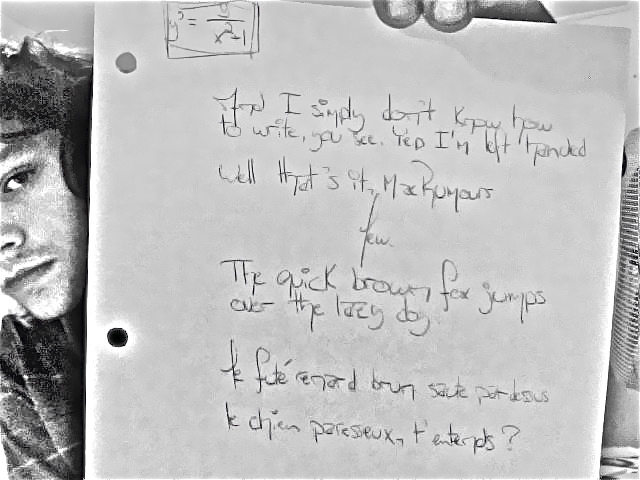 y³ = y / x²-1
And I simply don't know how
to write, you see. Yep I'm left handed
well that's it, MacRumours
few.
The quick brown fox jumps
over the lazy dog.
le futé renard brun saute par-dessus
le chien paresseux, t'entends ?